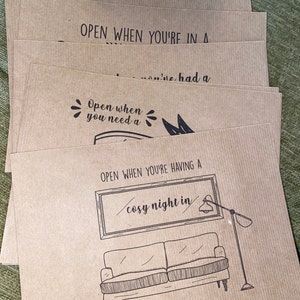 OPEN WHEN YOU'RE IN A
you've had a
Open when
you need a
OPEN WHEN YOU'RE HAVING A
cosy night in